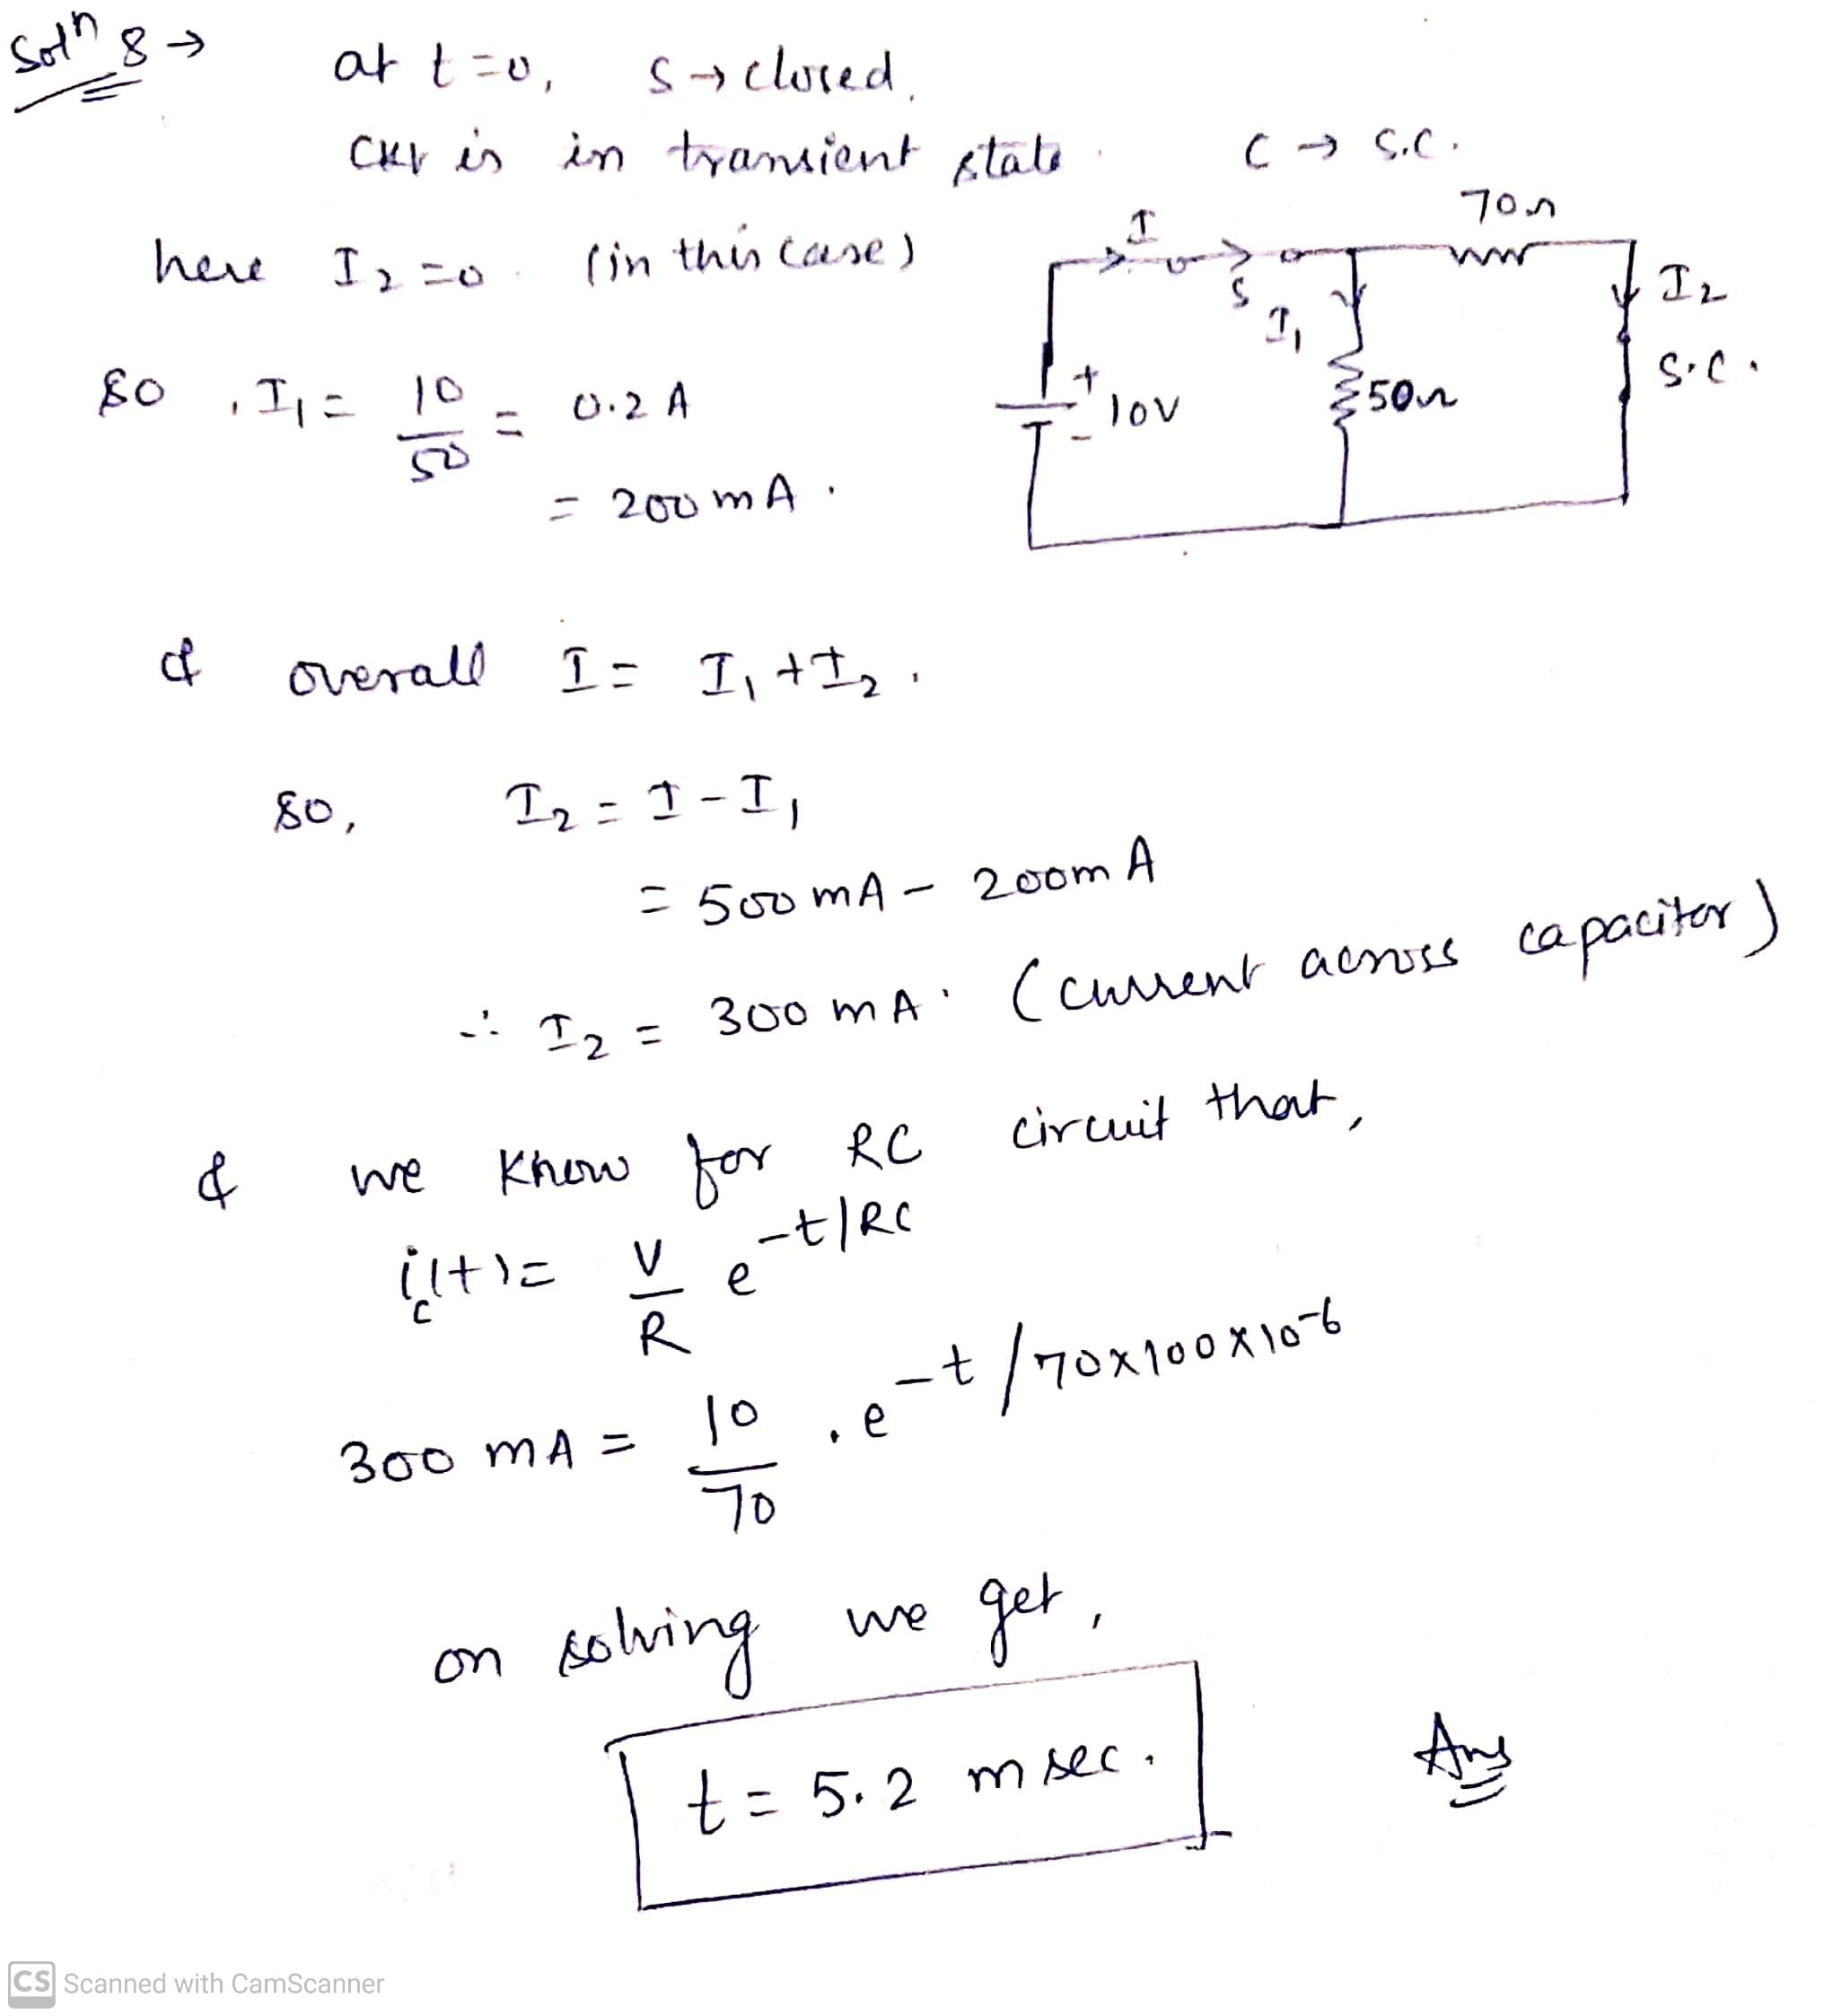 Solⁿ 8 →
at t=0, S → closed.
Ckt is in transient state. C → S.C.
here I₂ = 0. (in this case)
so, I₁ = 10/50 = 0.2 A
= 200 mA.
I
S
70Ω
I₁
I₂
S.C.
+
10V
-
50Ω
& overall I = I₁ + I₂.
so, I₂ = I - I₁
= 500 mA - 200 mA
∴ I₂ = 300 mA. (current across capacitor)
& we know for RC circuit that,
i_c(t) = V/R e^-t/RC
300 mA = 10/70 . e^-t/70x100x10^-6
on solving we get,
t = 5.2 msec. Ans
CS Scanned with CamScanner